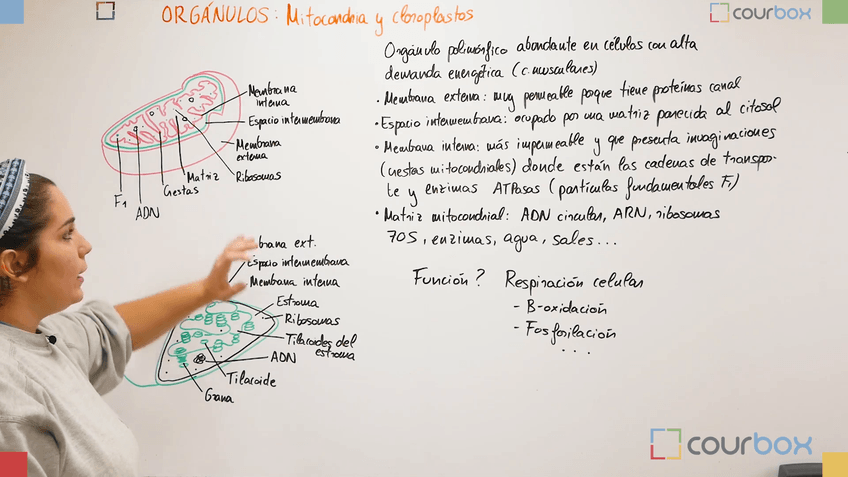 ORGÁNULOS: Mitocondria y cloroplastos
courbox
Membrana
interna
Espacio intermembrana
Membrana
externa
Ribosomas
Matriz
Crestas
F1
ADN
brana ext.
Espacio intermembrana
Membrana interna
Estroma
Ribosomas
Tilacoides del
estroma
ADN
Tilacoide
Grana
Orgánulo polimórfico abundante en células con alta
demanda energética (c. musculares)
· Membrana externa: muy permeable porque tiene proteínas canal
· Espacio intermembrana: ocupado por una matriz parecida al citosol
· Membrana interna: más impermeable y que presenta invaginaciones
(crestas mitocondriales) donde están las cadenas de transpor-
te y enzimas ATPasas (partículas fundamentales F1)
· Matriz mitocondrial: ADN circular, ARN, ribosomas
70S, enzimas, agua, sales...
Función? Respiración celular
- B-oxidación
- Fosforilación
...
courbox